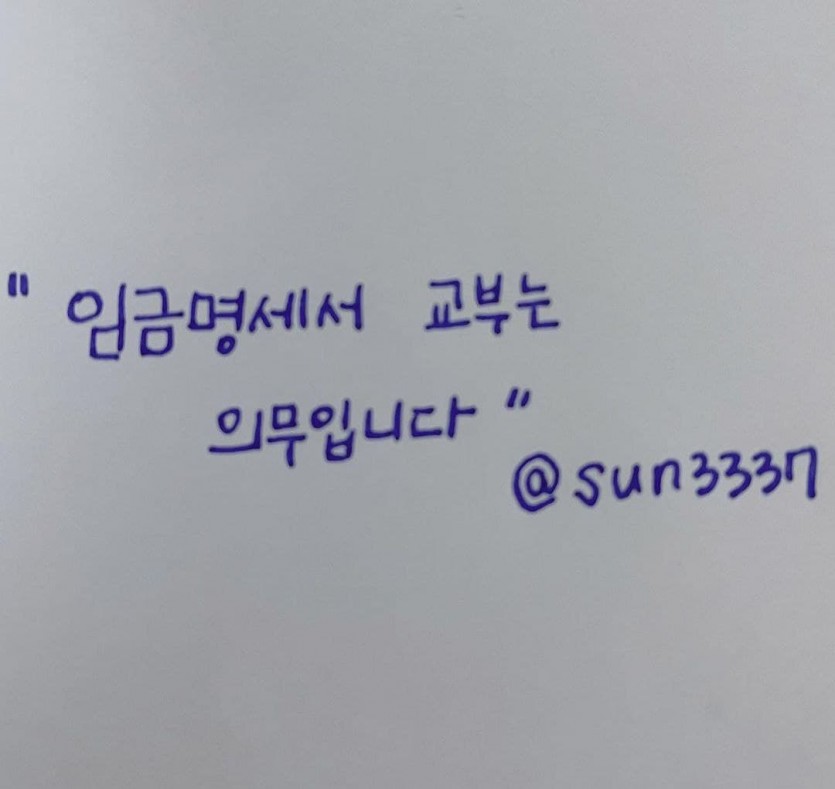 " 임금명세서 교부는
의무입니다 "
@sun3337